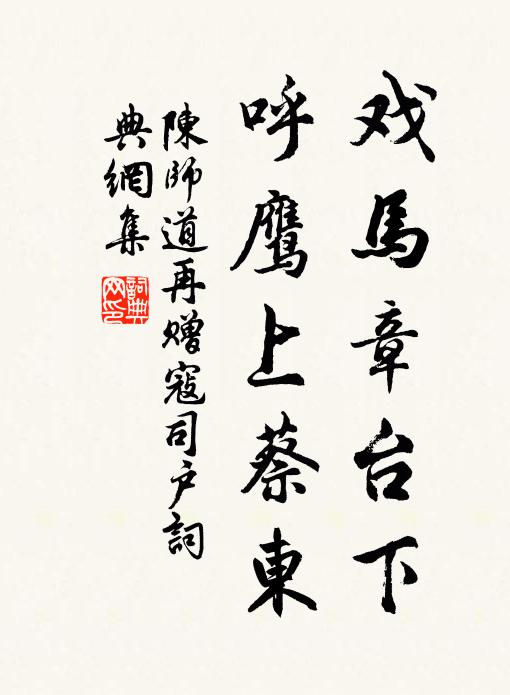 戏馬章台下
呼鹰上蔡東
陳師道再赠寇司户詞
典網集
詞典
网印